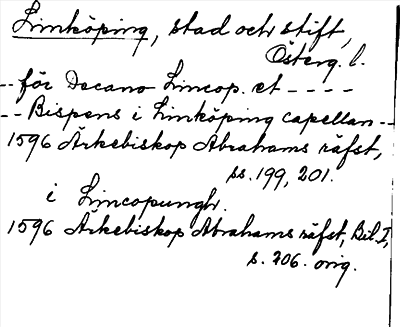 Linköping, stad och stift,
Österg. l.
-- för Decano Lincop. et ----
-- Bispens i Linköping capellan --
1596 Ärkebiskop Abrahams räfst,
ss. 199, 201.
i Lincopungh.
1596 Ärkebiskop Abrahams räfst, Bil. I,
s. 206. orig.